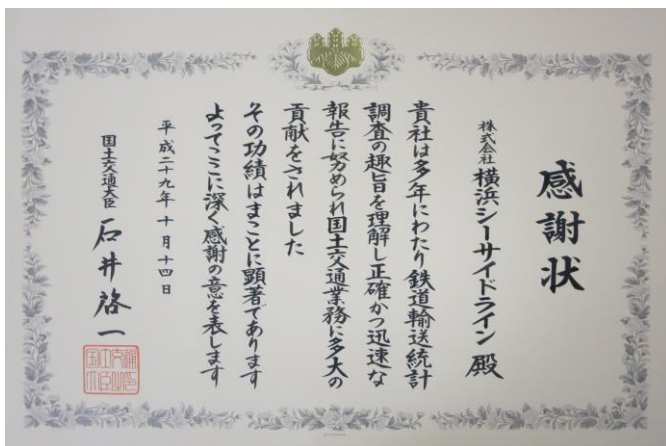 感謝状
株式会社 横浜シーサイドライン 殿
貴社は多年にわたり鉄道輸送統計
調査の趣旨を理解し正確かつ迅速な
報告に努められ国土交通業務に多大の
貢献をされました
その功績はまことに顕著であります
よってここに深く感謝の意を表します
平成二十九年十月十四日
国土交通大臣 石井啓一